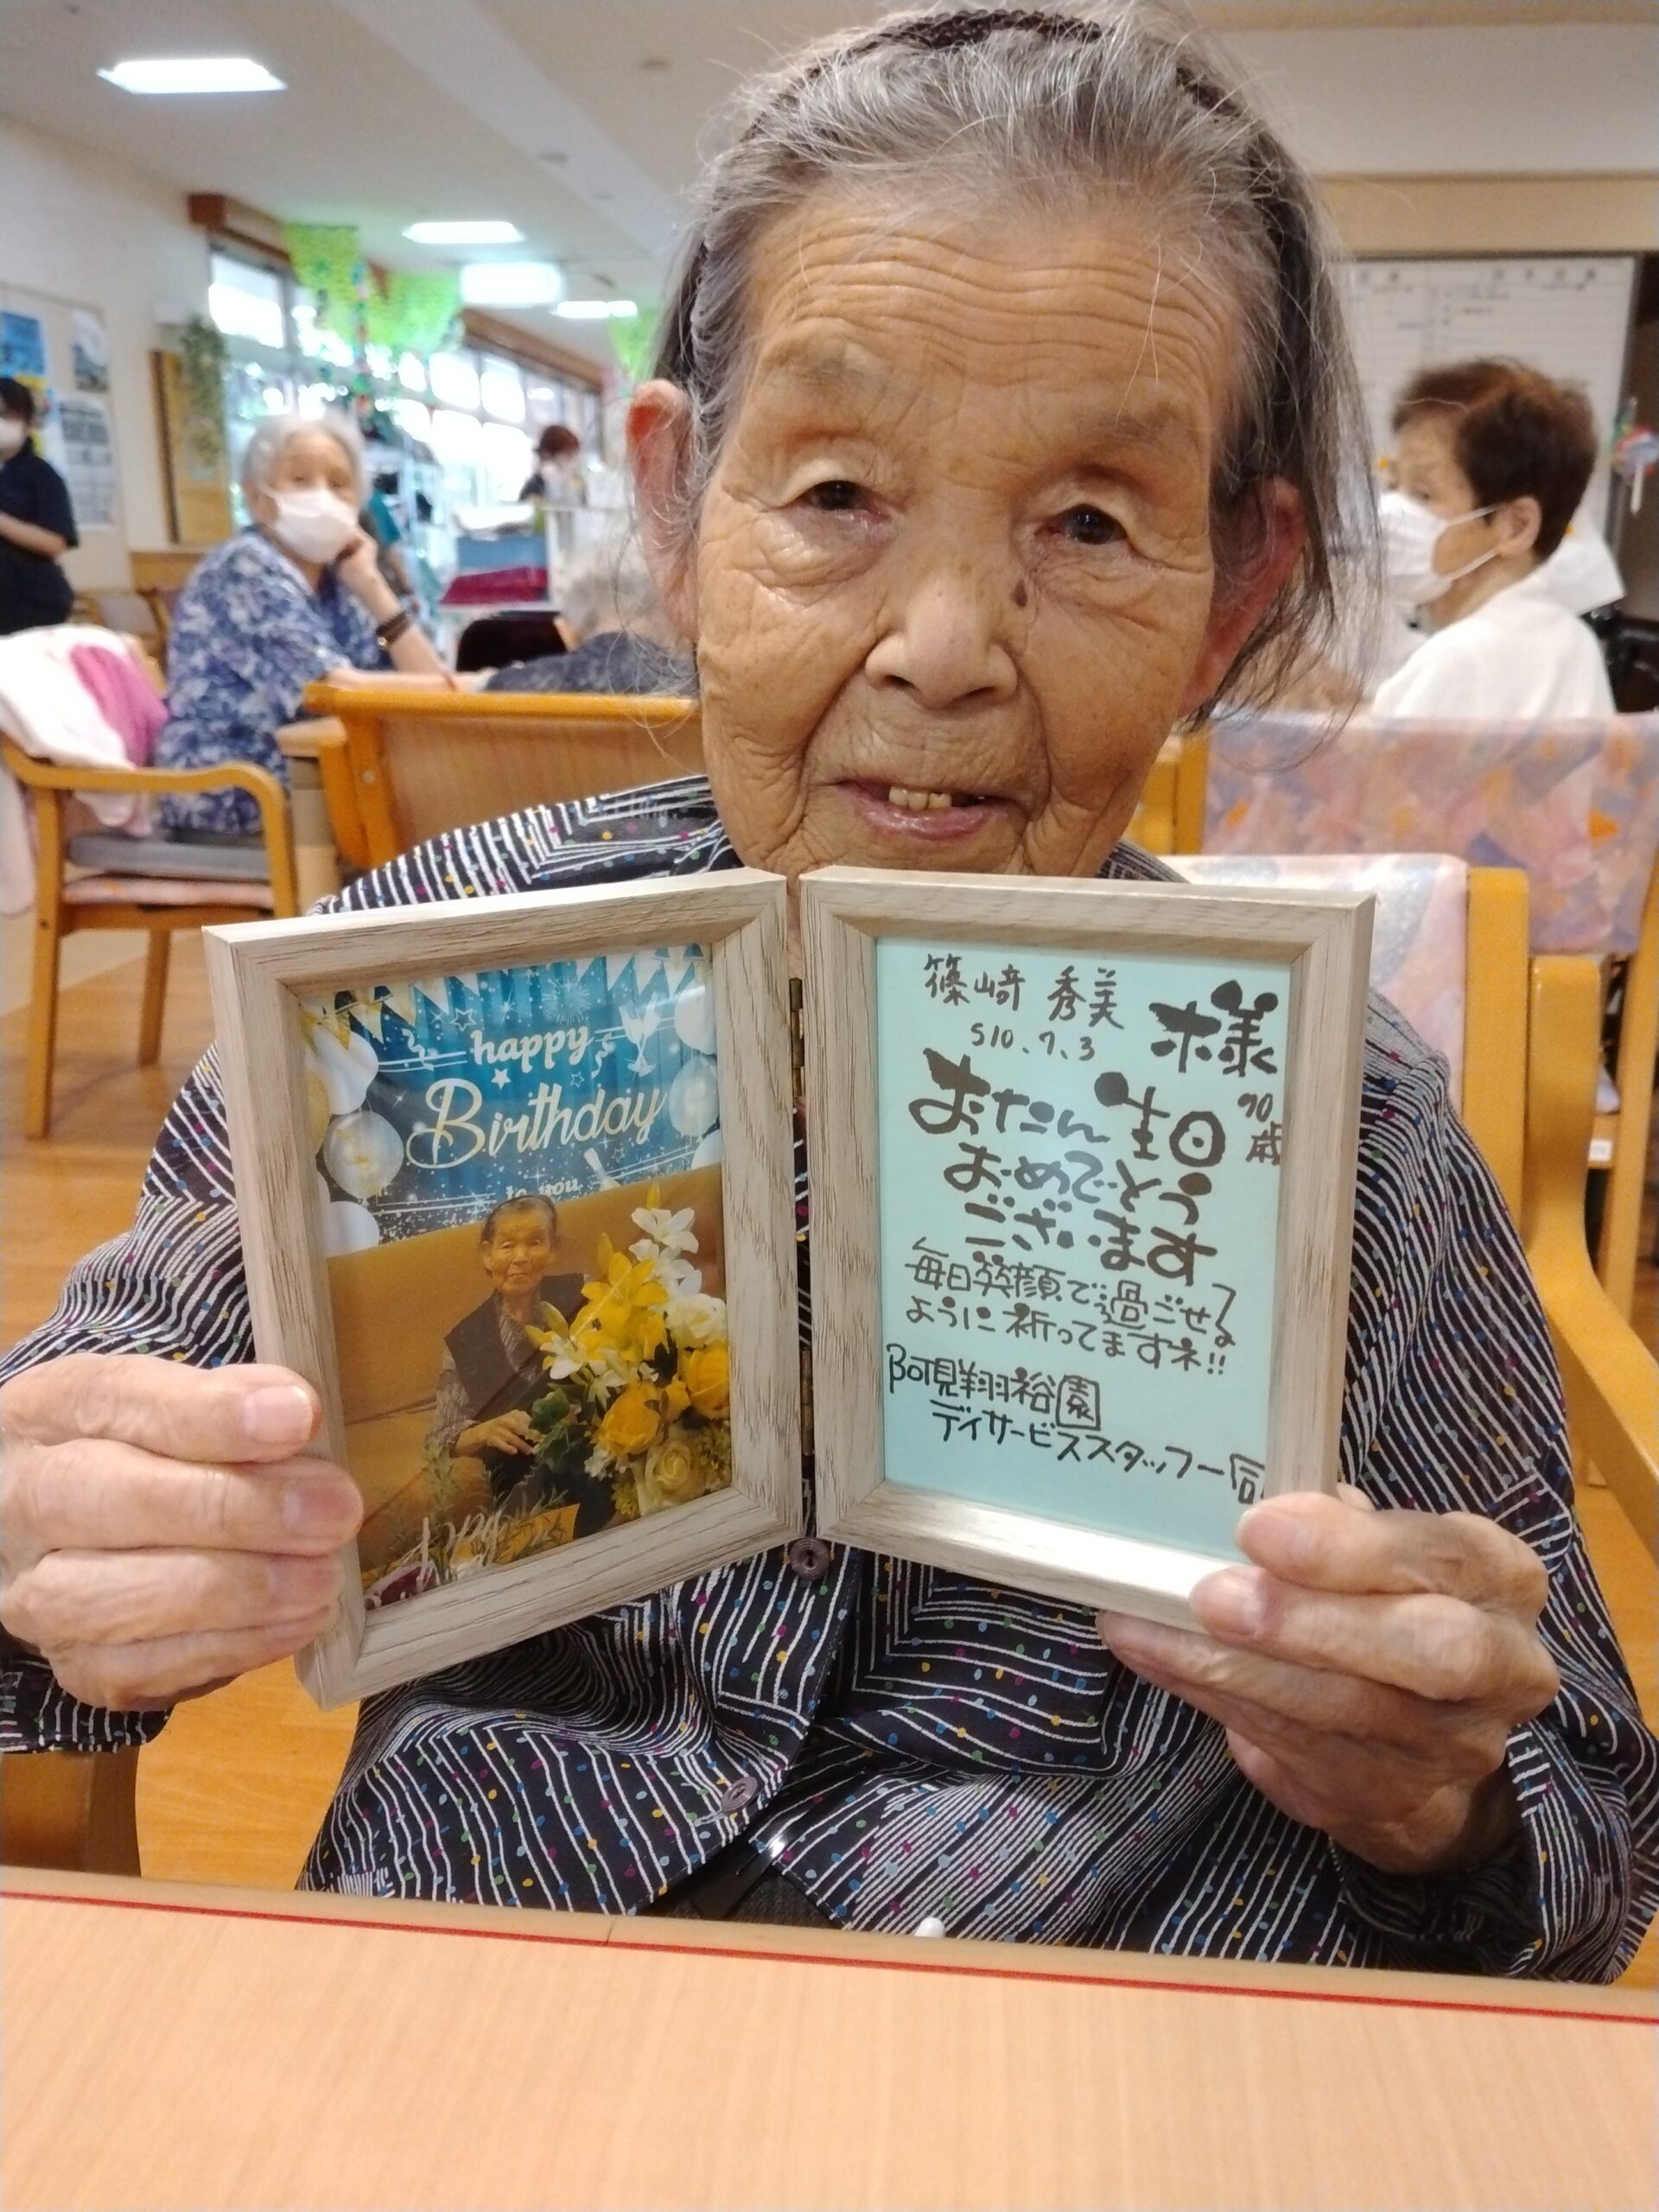 happy
Birthday
to you
篠崎 秀美 様
S10.7.3
90歳
おたん生日
おめでとう
ございます
毎日笑顔で過ごせる
ように祈ってますネ!!
阿見翔裕園
デイサービススタッフ一同